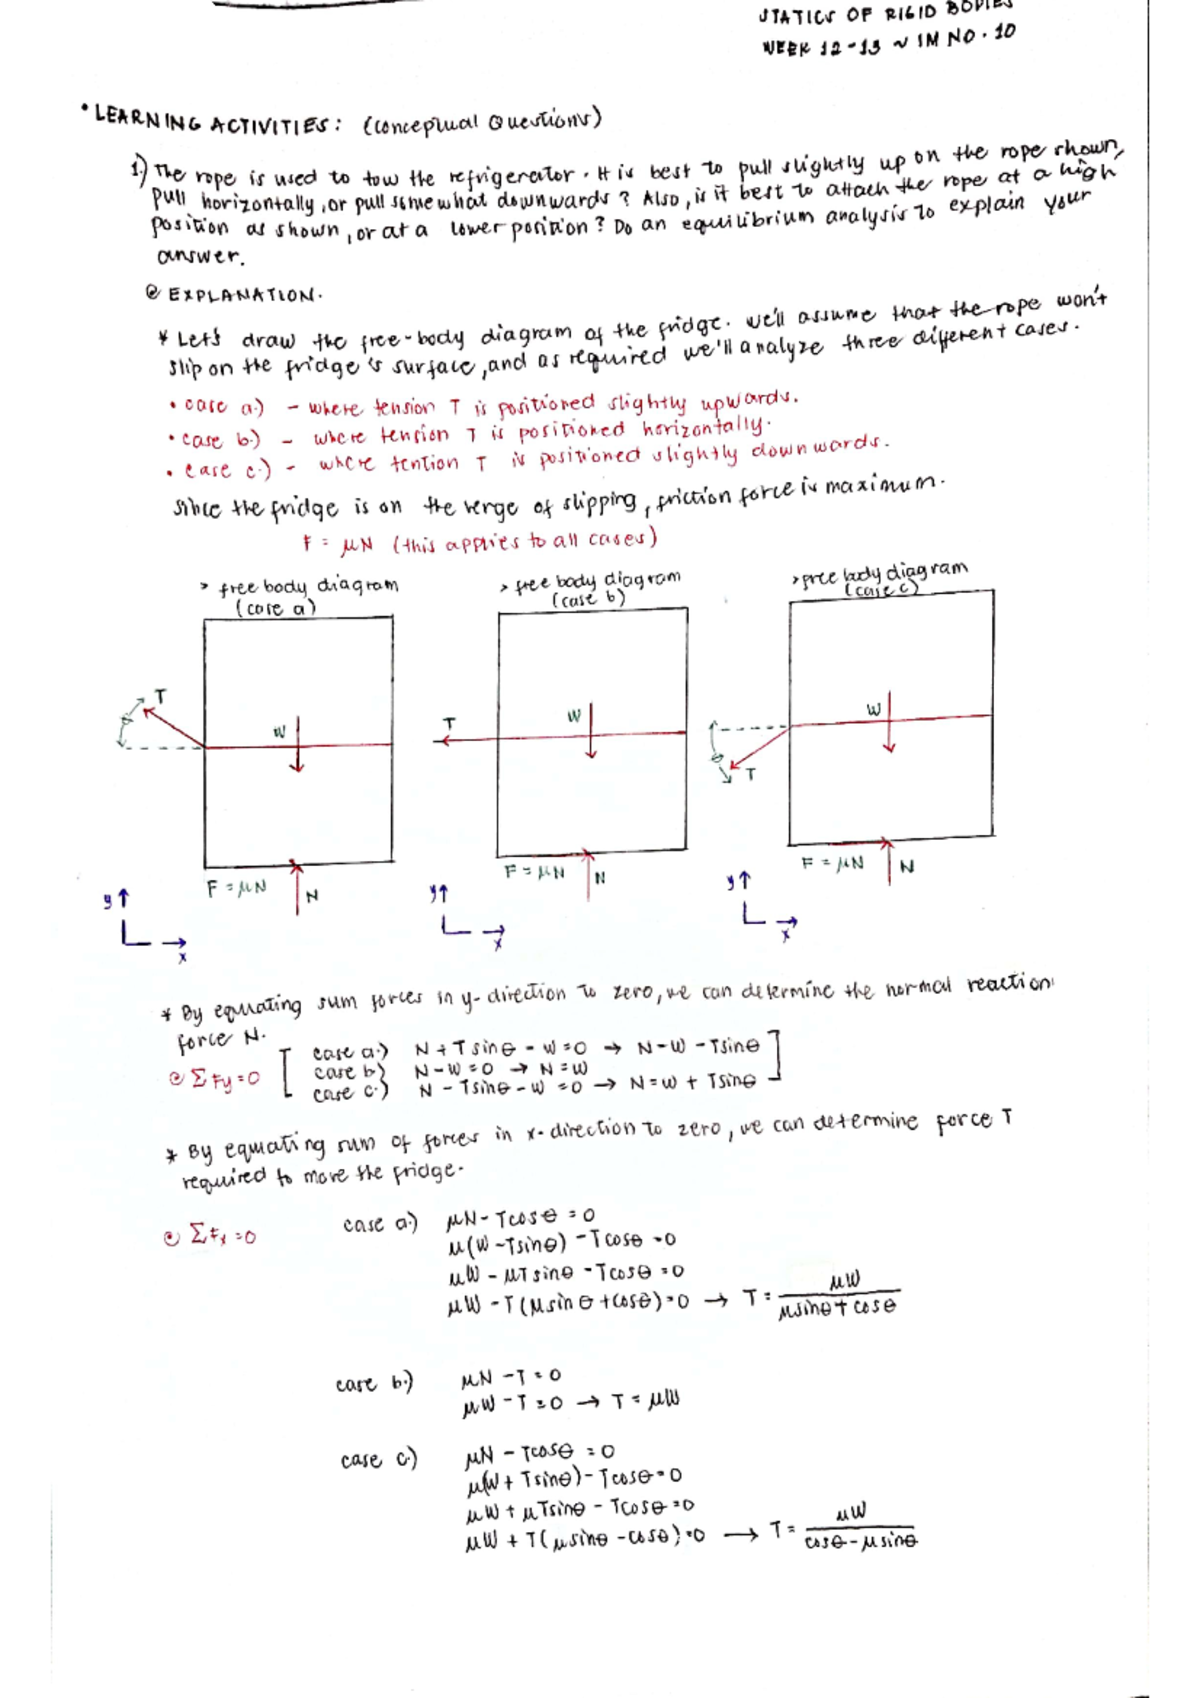 STATICS OF RIGID BODIES
WEEK 12-13 ~ IM NO. 10
• LEARNING ACTIVITIES: (Conceptual Questions)
1.) The rope is used to tow the refrigerator. It is best to pull slightly up on the rope shown,
pull horizontally, or pull somewhat downwards? Also, is it best to attach the rope at a high
position as shown, or at a lower position? Do an equilibrium analysis to explain your
answer.
@ EXPLANATION.
* Let's draw the free-body diagram of the fridge. We'll assume that the rope won't
slip on the fridge's surface, and as required we'll analyze three different cases.
• case a.) - where tension T is positioned slightly upwards.
• case b.) - where tension T is positioned horizontally.
• case c.) - where tention T is positioned slightly downwards.
Since the fridge is on the verge of slipping, friction force is maximum.
F = μN (this applies to all cases)
> free body diagram
(case a)
> free body diagram
(case b)
> free body diagram
(case c)
T
θ
W
F = μN
N
y
x
T
W
F = μN
N
y
x
W
θ
T
F = μN
N
y
x
* By equating sum forces in y-direction to zero, we can determine the normal reaction
force N.
@ ΣFy=0
case a.) N + T sinθ - W = 0 → N-W - Tsinθ
case b.) N-W = 0 → N = W
case c.) N - Tsinθ - W = 0 → N = W + Tsinθ
* By equating sum of forces in x-direction to zero, we can determine force T
required to move the fridge.
@ ΣFx=0
case a.) μN - Tcosθ = 0
μ(W - Tsinθ) - Tcosθ = 0
μW - μTsinθ - Tcosθ = 0
μW - T(μsinθ + cosθ) = 0 → T = μW / μsinθ + cosθ
case b.) μN - T = 0
μW - T = 0 → T = μW
case c.) μN - Tcosθ = 0
μ(W + Tsinθ) - Tcosθ = 0
μW + μTsinθ - Tcosθ = 0
μW + T(μsinθ - cosθ) = 0 → T = μW / cosθ - μsinθ